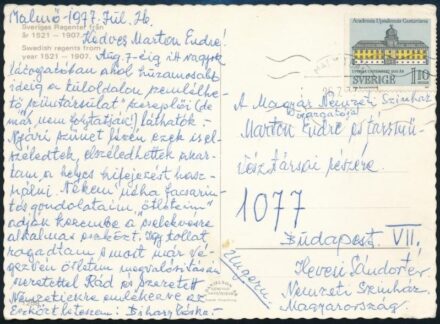 Malmö-1977. Júl. 26.
Sveriges Regenter från
år 1521 - 1907.
Swedish regents from
year 1521 - 1907.
Kedves Marton Endre!
Aug. 7-éig itt vagyok
látogatóban ahol huzamosabb
ideig a túloldalon szemlélhe-
tő szintársulat szereplői (de
már nem forgatják!) láthatók.-
Nyári szünet lévén ezek is el-
széledtek, elszéledhettek akar-
tam a helyes kifejezést hasz-
nálni. Nékem néha facsarin-
tos gondolataim, "ötleteim"
adják kezembe a
alkalmas eszközt. Így tollat
ragadtam s most már vé-
gezvén ötletem megvalósításával
szeretettel Rád és szeretett
Nemzetiekre emlékezve az
Academia Upsaliensis Gustaviana
SVERIGE
110
A Magyar Nemzeti Színház
Igazgatója
Marton Endre és társmű-
vésztársai részére
1077
Budapest VII.
Hevesi Sándor tér
Nemzeti Színház
Magyarország.
Ungern